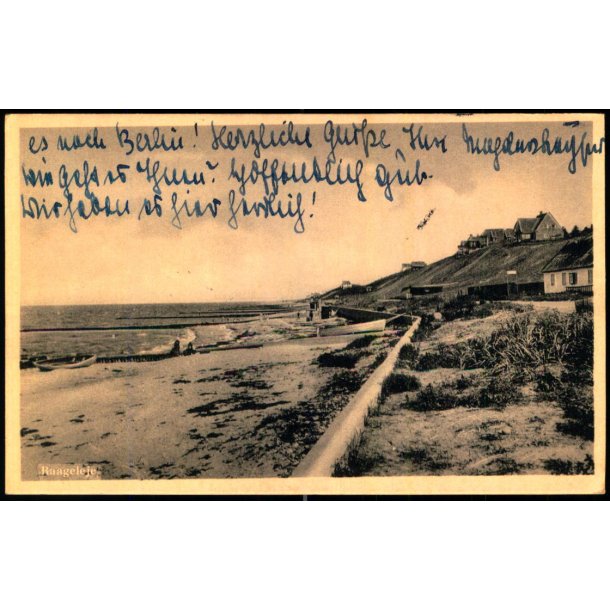 es nach Berlin! Herzliche Grüße Ihre
wie geht es Ihnen? Hoffentlich gut.
Wir haben es hier herrlich!
Raageleje